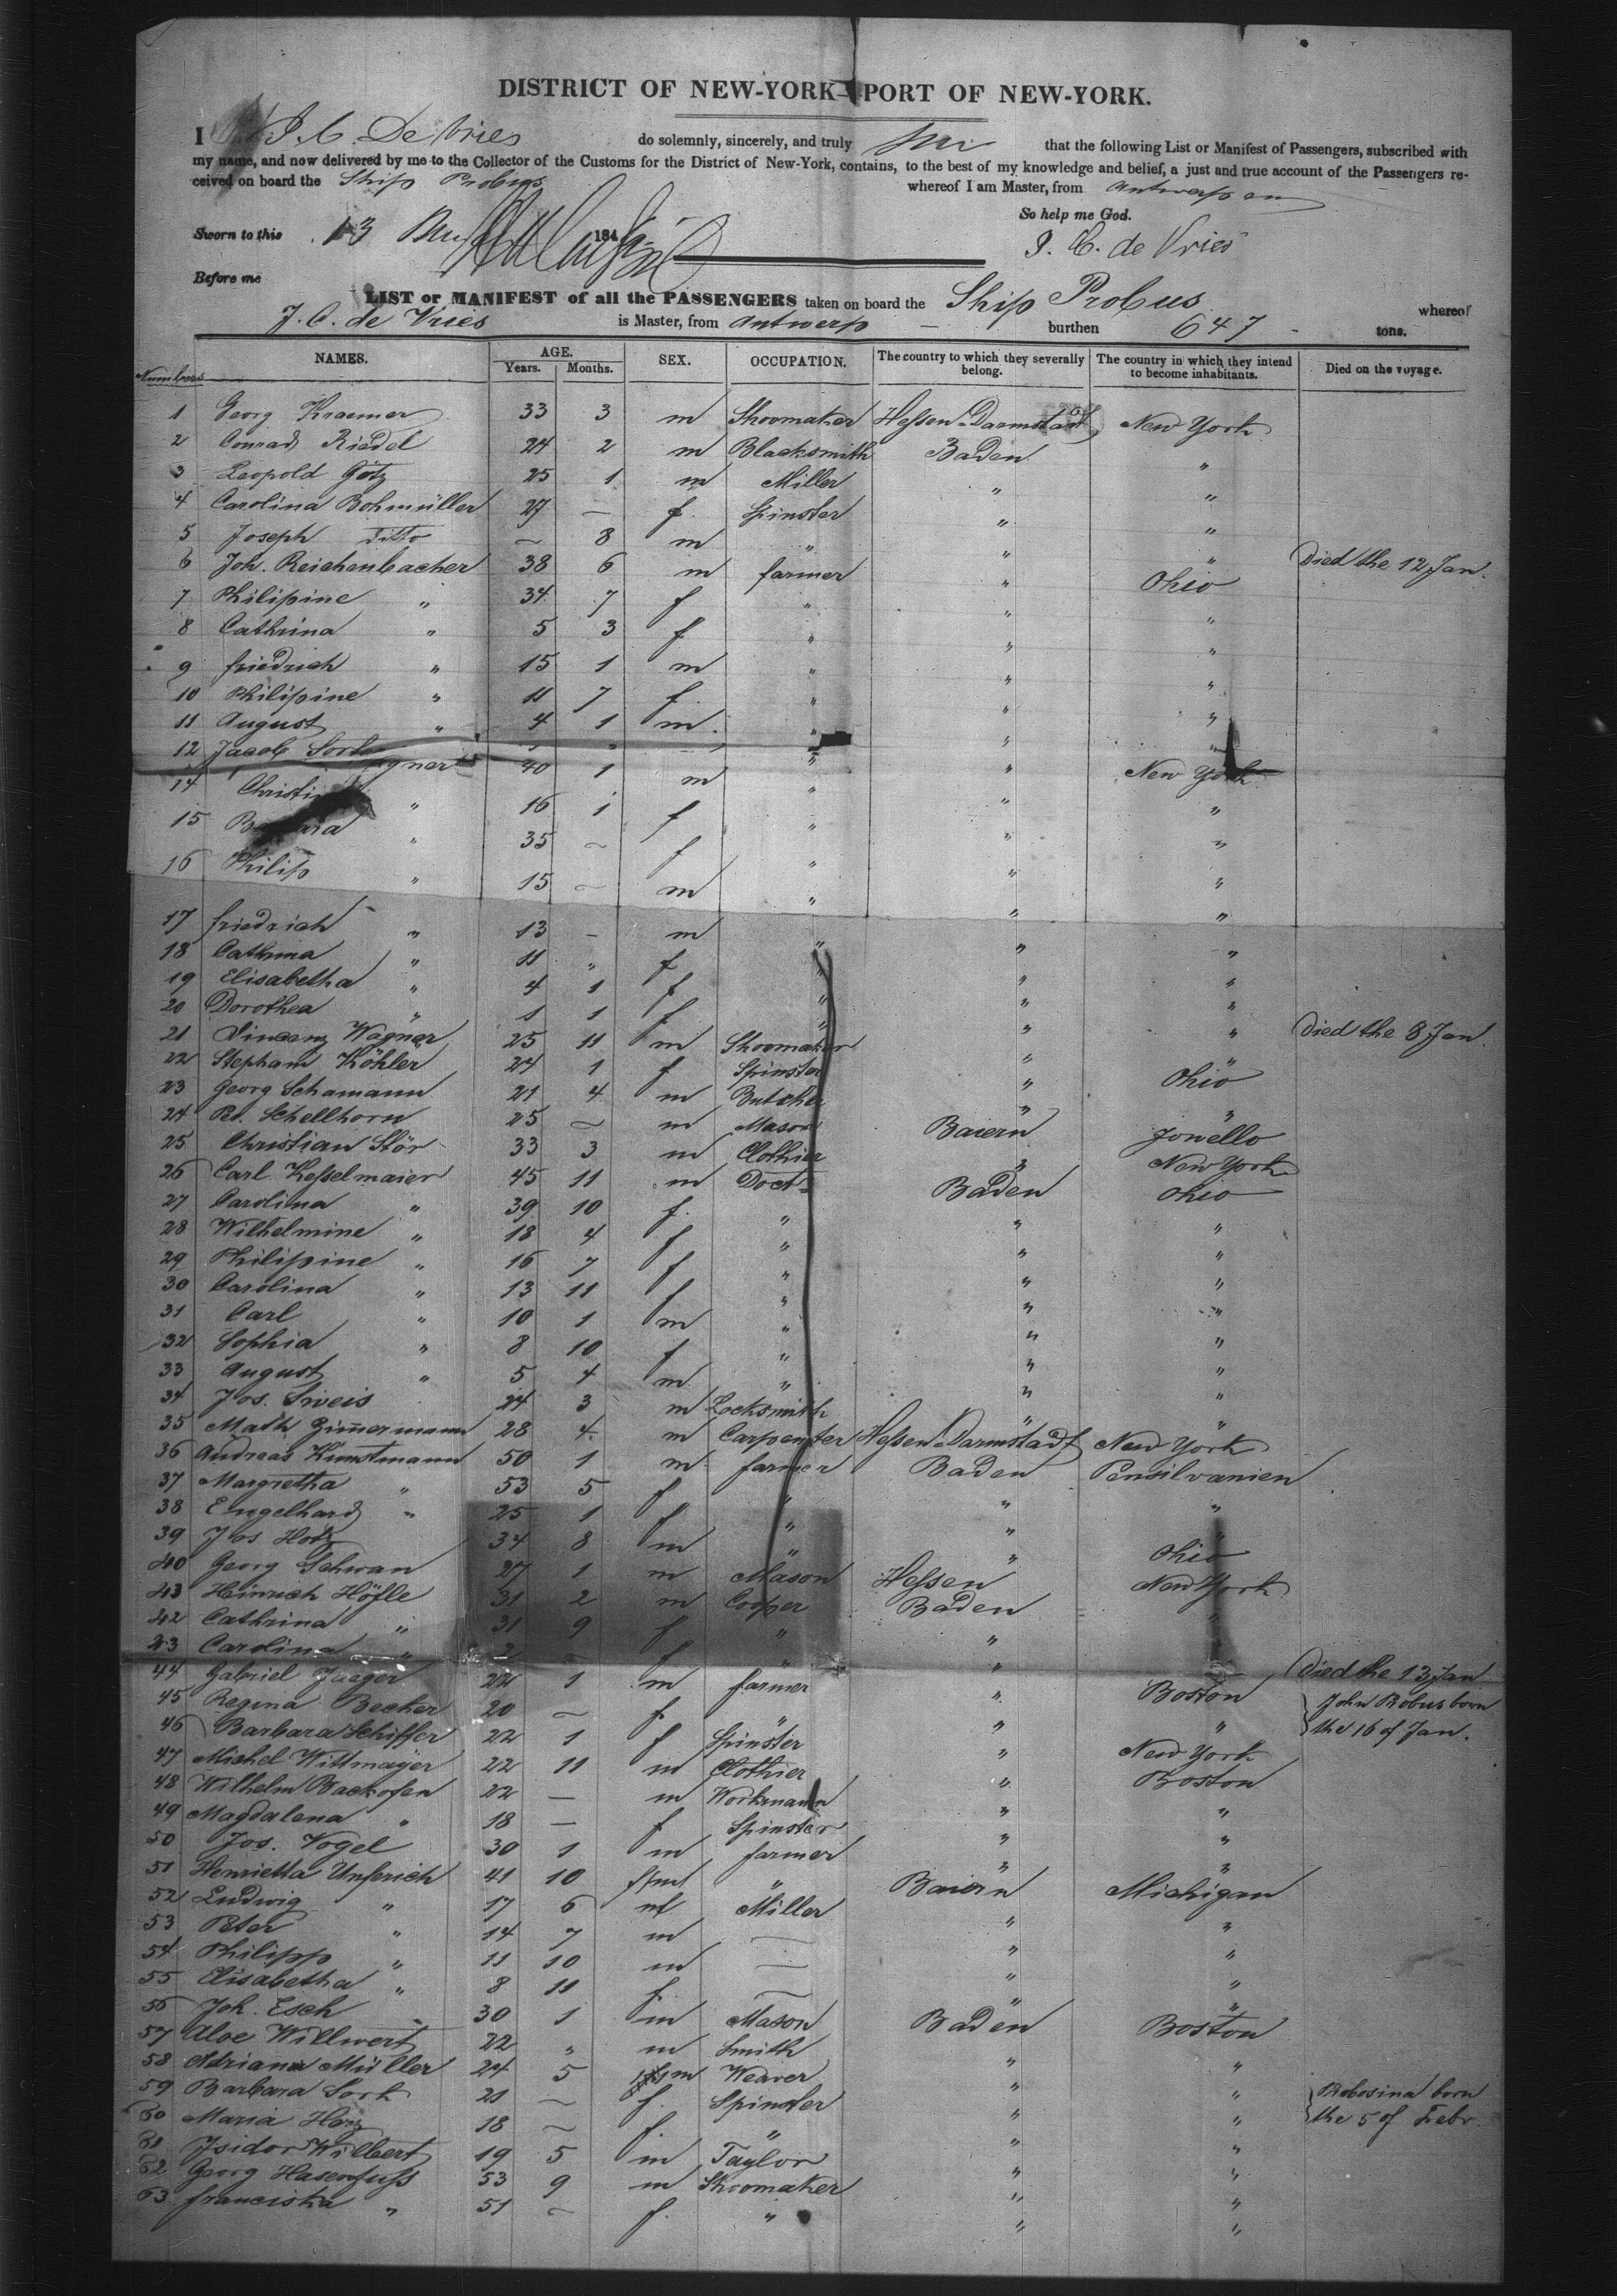 DISTRICT OF NEW-YORK — PORT OF NEW-YORK.
I J. C. De Vries do solemnly, sincerely, and truly that the following List or Manifest of Passengers, subscribed with
my name, and now delivered by me to the Collector of the Customs for the District of New-York, contains, to the best of my knowledge and belief, a just and true account of the Passengers re-
ceived on board the Ship Probus whereof I am Master, from Antwerpen
So help me God.
Sworn to this 13 184 J. C. de Vries
Before me
LIST or MANIFEST of all the PASSENGERS taken on board the Ship Probus whereof
J. C. de Vries is Master, from Antwerp — burthen 647 - tons.
Numbers NAMES. AGE. Years. Months. SEX. OCCUPATION. The country to which they severally belong. The country in which they intend to become inhabitants. Died on the voyage.
1 Georg Kraemer 33 3 m Shoomaker Hessen Darmstadt New York
2 Conrad Riedel 24 2 m Blacksmith Baden "
3 Leopold Götz 25 1 m Miller " "
4 Carolina Bohmüller 27 — f. Spinster " "
5 Joseph ditto — 8 m " " " Died the 12 Jan.
6 Joh. Reichenbacher 38 6 m farmer " Ohio
7 Philipine " 34 7 f " " "
8 Cathrina " 5 3 f " " "
9 friedrich " 15 1 m " " "
10 Philipine " 11 7 f " " "
11 August " 4 1 m. " " "
12 Jacob
gner 40 1 m " " New York
14 Christi " 16 1 f " " "
15 Barbara " 35 — f " " "
16 Philip " 15 — m " " "
17 friedrich " 13 — m " " "
18 Cathrina " 11 " f " " "
19 Elisabetha " 4 1 f " " "
20 Dorothea " 1 1 f " " " Died the 8 Jan.
21 Vincenz Wagner 25 11 m Shoomaker " "
22 Stepham Köhler 24 1 f Spinster " Ohio
23 Georg Schamann 21 4 m Butcher " "
24 Pet. Schellhorn 25 — m Mason Baiern Jonello
25 Christian Stör 33 3 m Clothier " New York
26 Carl Kesselmaier 45 11 m Doct Baden Ohio
27 Carolina " 39 10 f. " " "
28 Wilhelmine " 18 4 f " " "
29 Philipine " 16 7 f " " "
30 Carolina " 13 11 f " " "
31 Carl " 10 1 m " " "
32 Sophia " 8 10 f " " "
33 August " 5 4 m " " "
34 Jos. Sweis 24 3 m Locksmith " "
35 Math Zim̄ermann 28 4 m Carpenter Hessen Darmstadt New York
36 Andreas Kunstmann 50 1 m farmer Baden Pensilvanien
37 Margretha " 53 5 f " " "
38 Engelhard " 25 1 m " " "
39 Jos Hotz 34 8 m " " Ohio
40 Georg Schwan 27 1 m Mason Hessen New York
43 Heinrich Höfle 31 2 m Cooper Baden "
42 Cathrina " 31 9 f " " "
43 Carolina " 2 — f " " " Died the 13 Jan
44 Gabriel Jaeger 22 1 m farmer " Boston
45 Regina Becker 20 — f " " " John Probus born the 16 of Jan.
46 Barbara Schiffer 22 1 f Spinster " New York
47 Michel Wittmayer 22 11 m Clothier " Boston
48 Wilhelm Backofen 22 — m Workmann " "
49 Magdalena " 18 — f Spinster " "
50 Jos. Vogel 30 1 m farmer " "
51 Henrietta Unferich 41 10 f " Baiern Michigan
52 Ludwig " 17 6 m Miller " "
53 Peter " 14 7 m — " "
54 Philipp " 11 10 m — " "
55 Elisabetha " 8 11 f. — " "
56 Joh. Esch 30 1 m Mason Baden Boston
57 Aloe Willwert 22 " m Smith " "
58 Adriana Müller 24 5 m Weaver " "
59 Barbara Sork 21 — f. Spinster " " Probosina born the 5 of Febr.
60 Maria 18 — f. " " "
61 Isidor Wilbert 19 5 m Taylor " "
62 Georg Hasenfuss 53 9 m Shoomaker " "
63 franciska " 51 — f. " " "